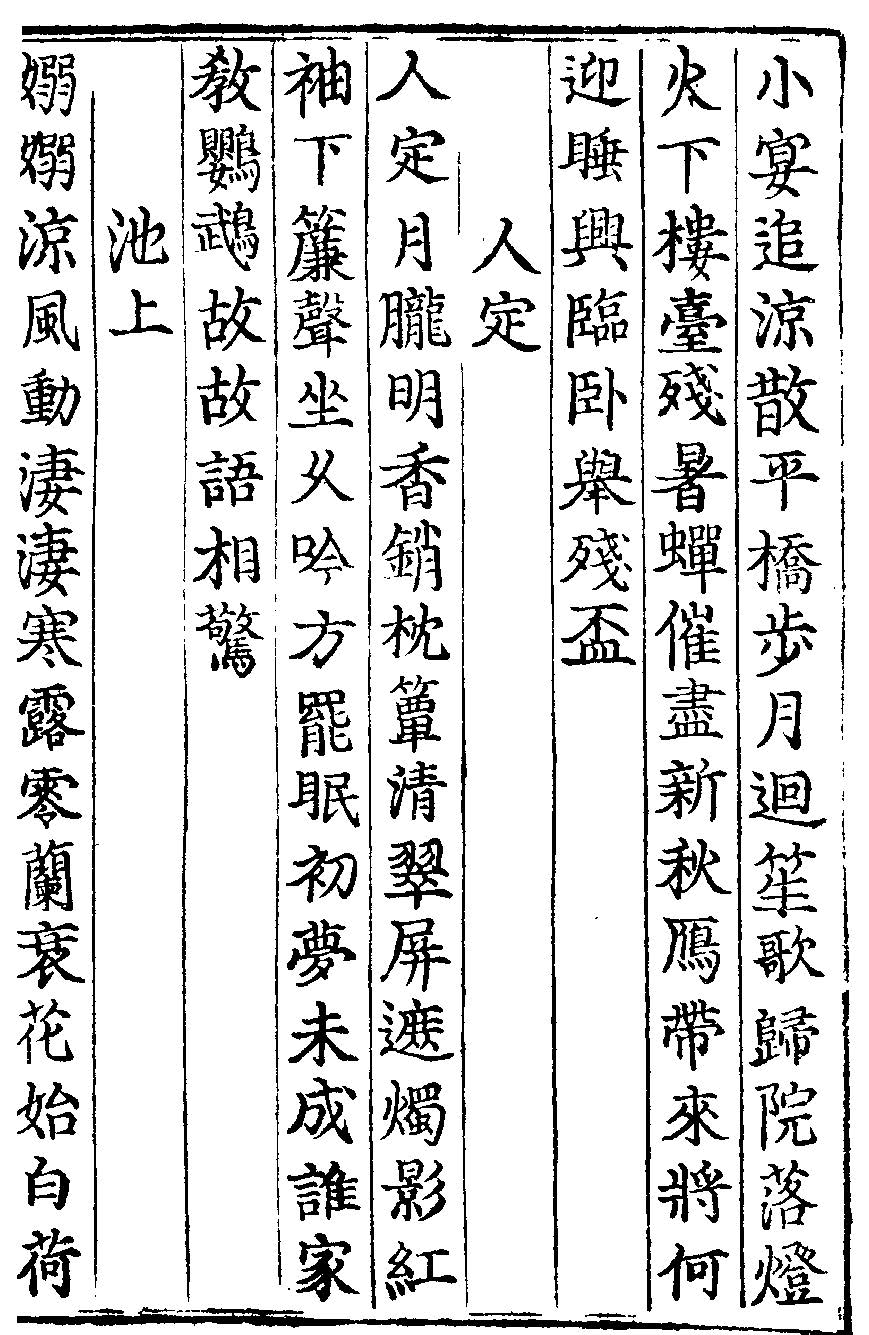 小宴追涼散平橋步月迴笙歌歸院落燈
火下樓臺殘暑蟬催盡新秋鴈帶來將何
迎睡興臨卧舉殘盃
人定
人定月朧明香銷枕簟清翠屏遮燭影紅
袖下簾聲坐久吟方罷眠初夢未成誰家
教鸚鵡故故語相驚
池上
嫋嫋涼風動淒淒寒露零蘭衰花始白荷